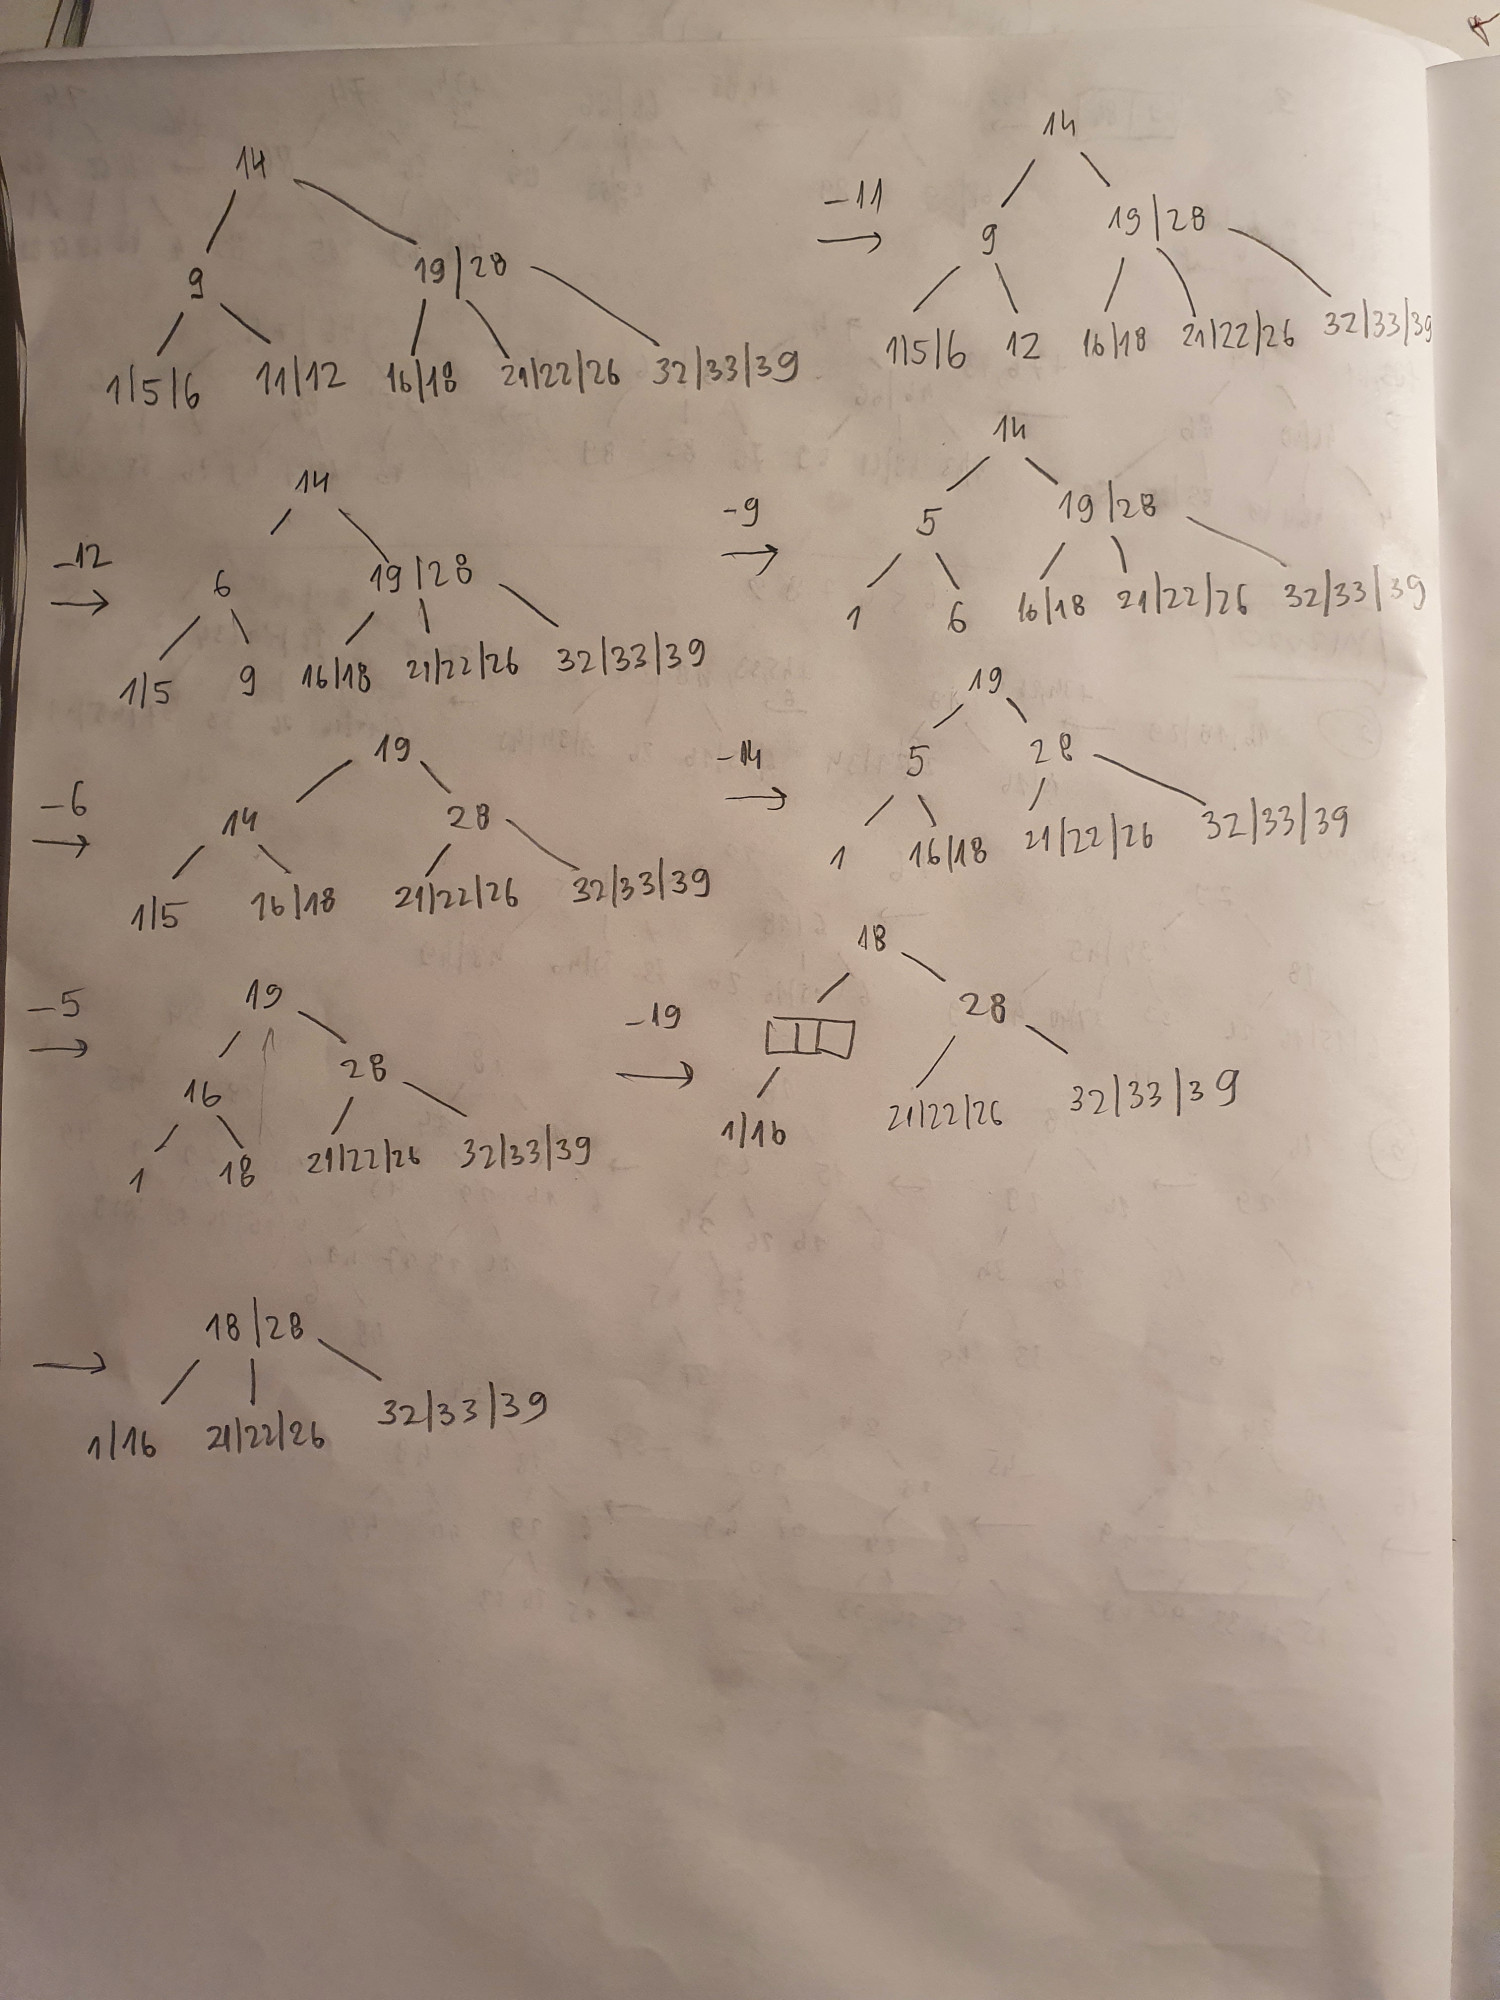 14
9 19|28
1|5|6 11|12 16|18 21|22|26 32|33|39
-11 →
14
9 19|28
1|5|6 12 16|18 21|22|26 32|33|39
-12 →
14
6 19|28
1|5 9 16|18 21|22|26 32|33|39
-9 →
14
5 19|28
1 6 16|18 21|22|26 32|33|39
-6 →
19
14 28
1|5 16|18 21|22|26 32|33|39
-14 →
19
5 28
1 16|18 21|22|26 32|33|39
-5 →
19
16 28
1 18 21|22|26 32|33|39
-19 →
18
28
1|16 21|22|26 32|33|39
→
18|28
1|16 21|22|26 32|33|39